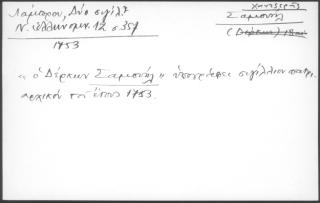 Λάμπρου, Δύο σιγίλ.
Ν. Ἑλληνομν. 12 σ 35
1753
Σαμουὴλ
(Δέρκων)
« ὁ Δέρκων Σαμουὴλ » ὑπογράφει σιγίλλιον πατρι
αρχικὸν τοῦ ἔτους 1753.